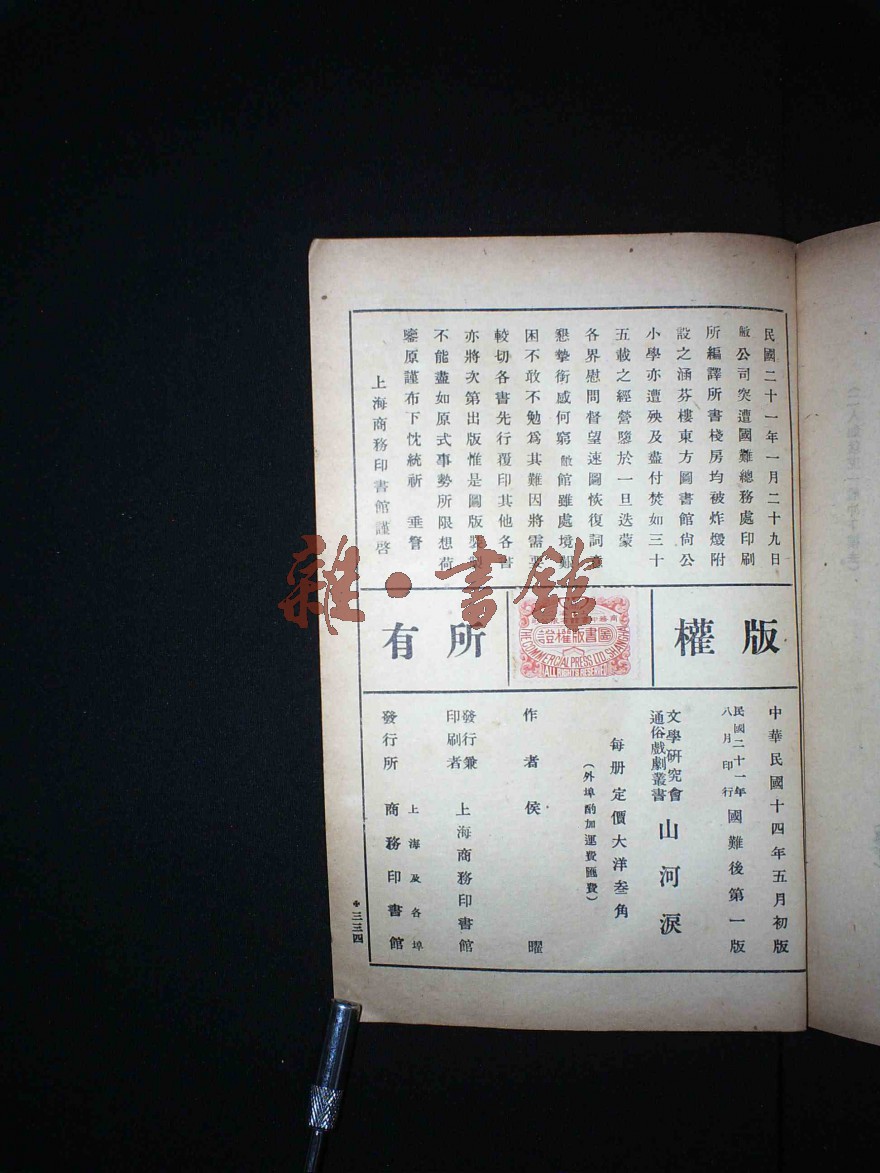 民國二十一年一月二十九日
敝公司突遭國難總務處印刷
所編譯所書棧房均被炸燬附
設之涵芬樓東方圖書館尙公
小學亦遭殃及盡付焚如三十
五載之經營隳於一旦迭蒙
各界慰問督望速圖恢復詞意
懇摯銜感何窮敝館雖處境艱
困不敢不勉爲其難因將需要
較切各書先行覆印其他各書
亦將次第出版惟是圖版裝製
不能盡如原式事勢所限想荷
鑒原謹布下忱統祈 垂詧
上海商務印書館謹啓
版權
圖書版權證
THE COMMERCIAL PRESS LTD SHANGHAI
ALL RIGHTS RESERVED
所有
雜·書館
中華民國十四年五月初版
民國二十一年八月印行 國難後第一版
文學研究會通俗戲劇叢書 山河淚
每册定價大洋叁角
(外埠酌加運費匯費)
作者 侯曜
發行兼印刷者 上海商務印書館
發行所 上海及各埠 商務印書館
三三四